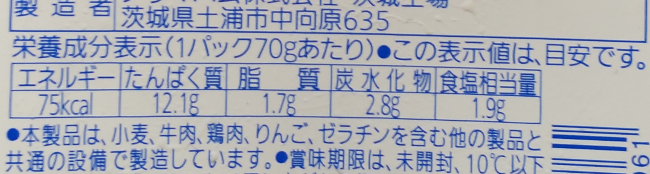 製造者
茨城県土浦市中向原635
栄養成分表示(1パック70gあたり)●この表示値は、目安です。
エネルギー たんぱく質 脂質 炭水化物 食塩相当量
75kcal 12.1g 1.7g 2.8g 1.9g
●本製品は、小麦、牛肉、鶏肉、りんご、ゼラチンを含む他の製品と
共通の設備で製造しています。●賞味期限は、未開封、10℃以下